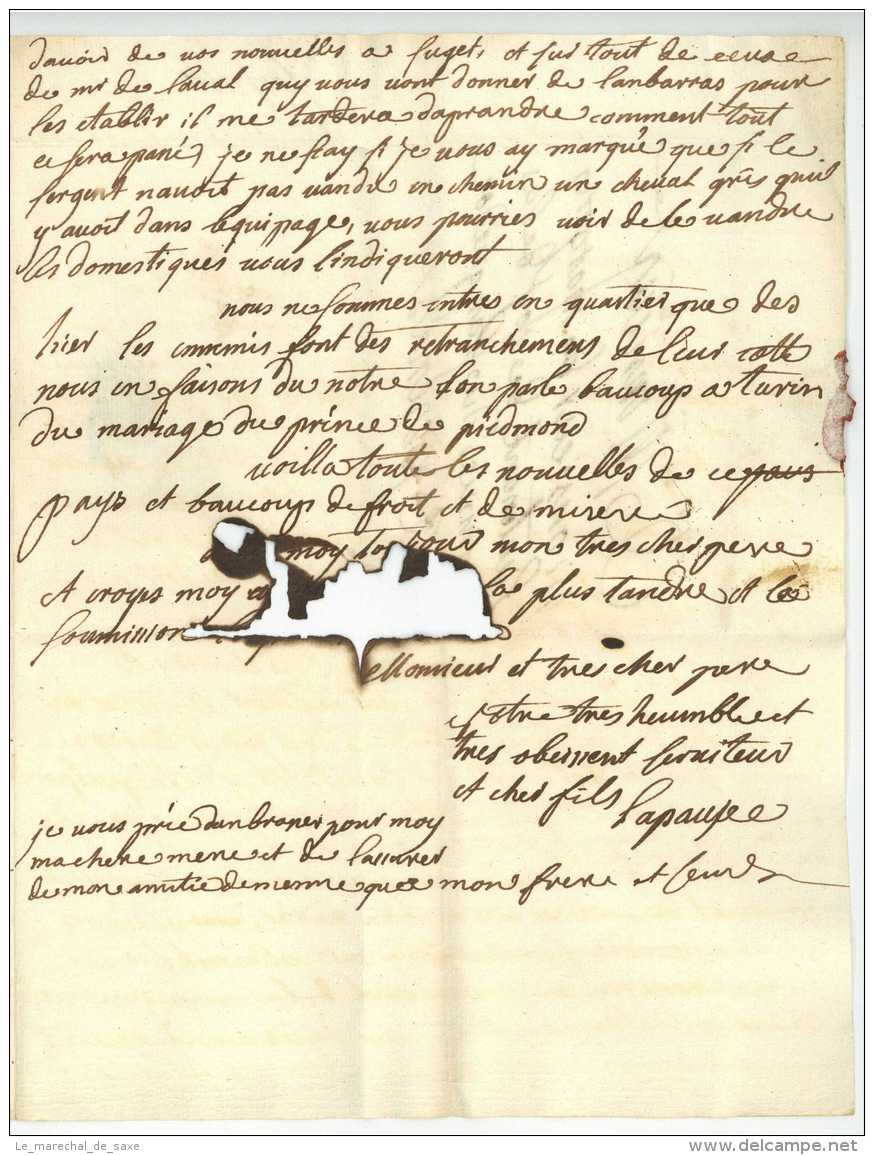 davoir de vos nouvelles a sujet, et sur tout de ceux
de mr de laval quy vous vont donner de lanbarras pour
les etablir il me tardera daprandre comment tout
ce sera passé, je ne scay si je vous ay marqué que si le
sergent navoit pas vandu en chemin un cheval gris quil
y avoit dans lequipage, vous pourriés voir de le vandre
les domestiques vous lindiqueront
nous ne sommes entres en quartier que des
hier les ennemis font des retranchemens de leur cotté
nous en faisons du notre lon parle baucoup a turin
du mariage du prince de piedmond
voilla toute les nouvelles de ce pais
pays et baucoup de froit et de misere
moy toujour mon tres cher pere
et croyés moy la plus tandre et la
soumission
Monsieur et tres cher pere
votre tres heumble et
tres obeissent serviteur
et cher fils
lapause
je vous prie danbrasser pour moy
ma chere mere et de lassurer
de mon amitie de meme que mon frere et seurs
Le_marechal_de_saxe
www.delcampe.net